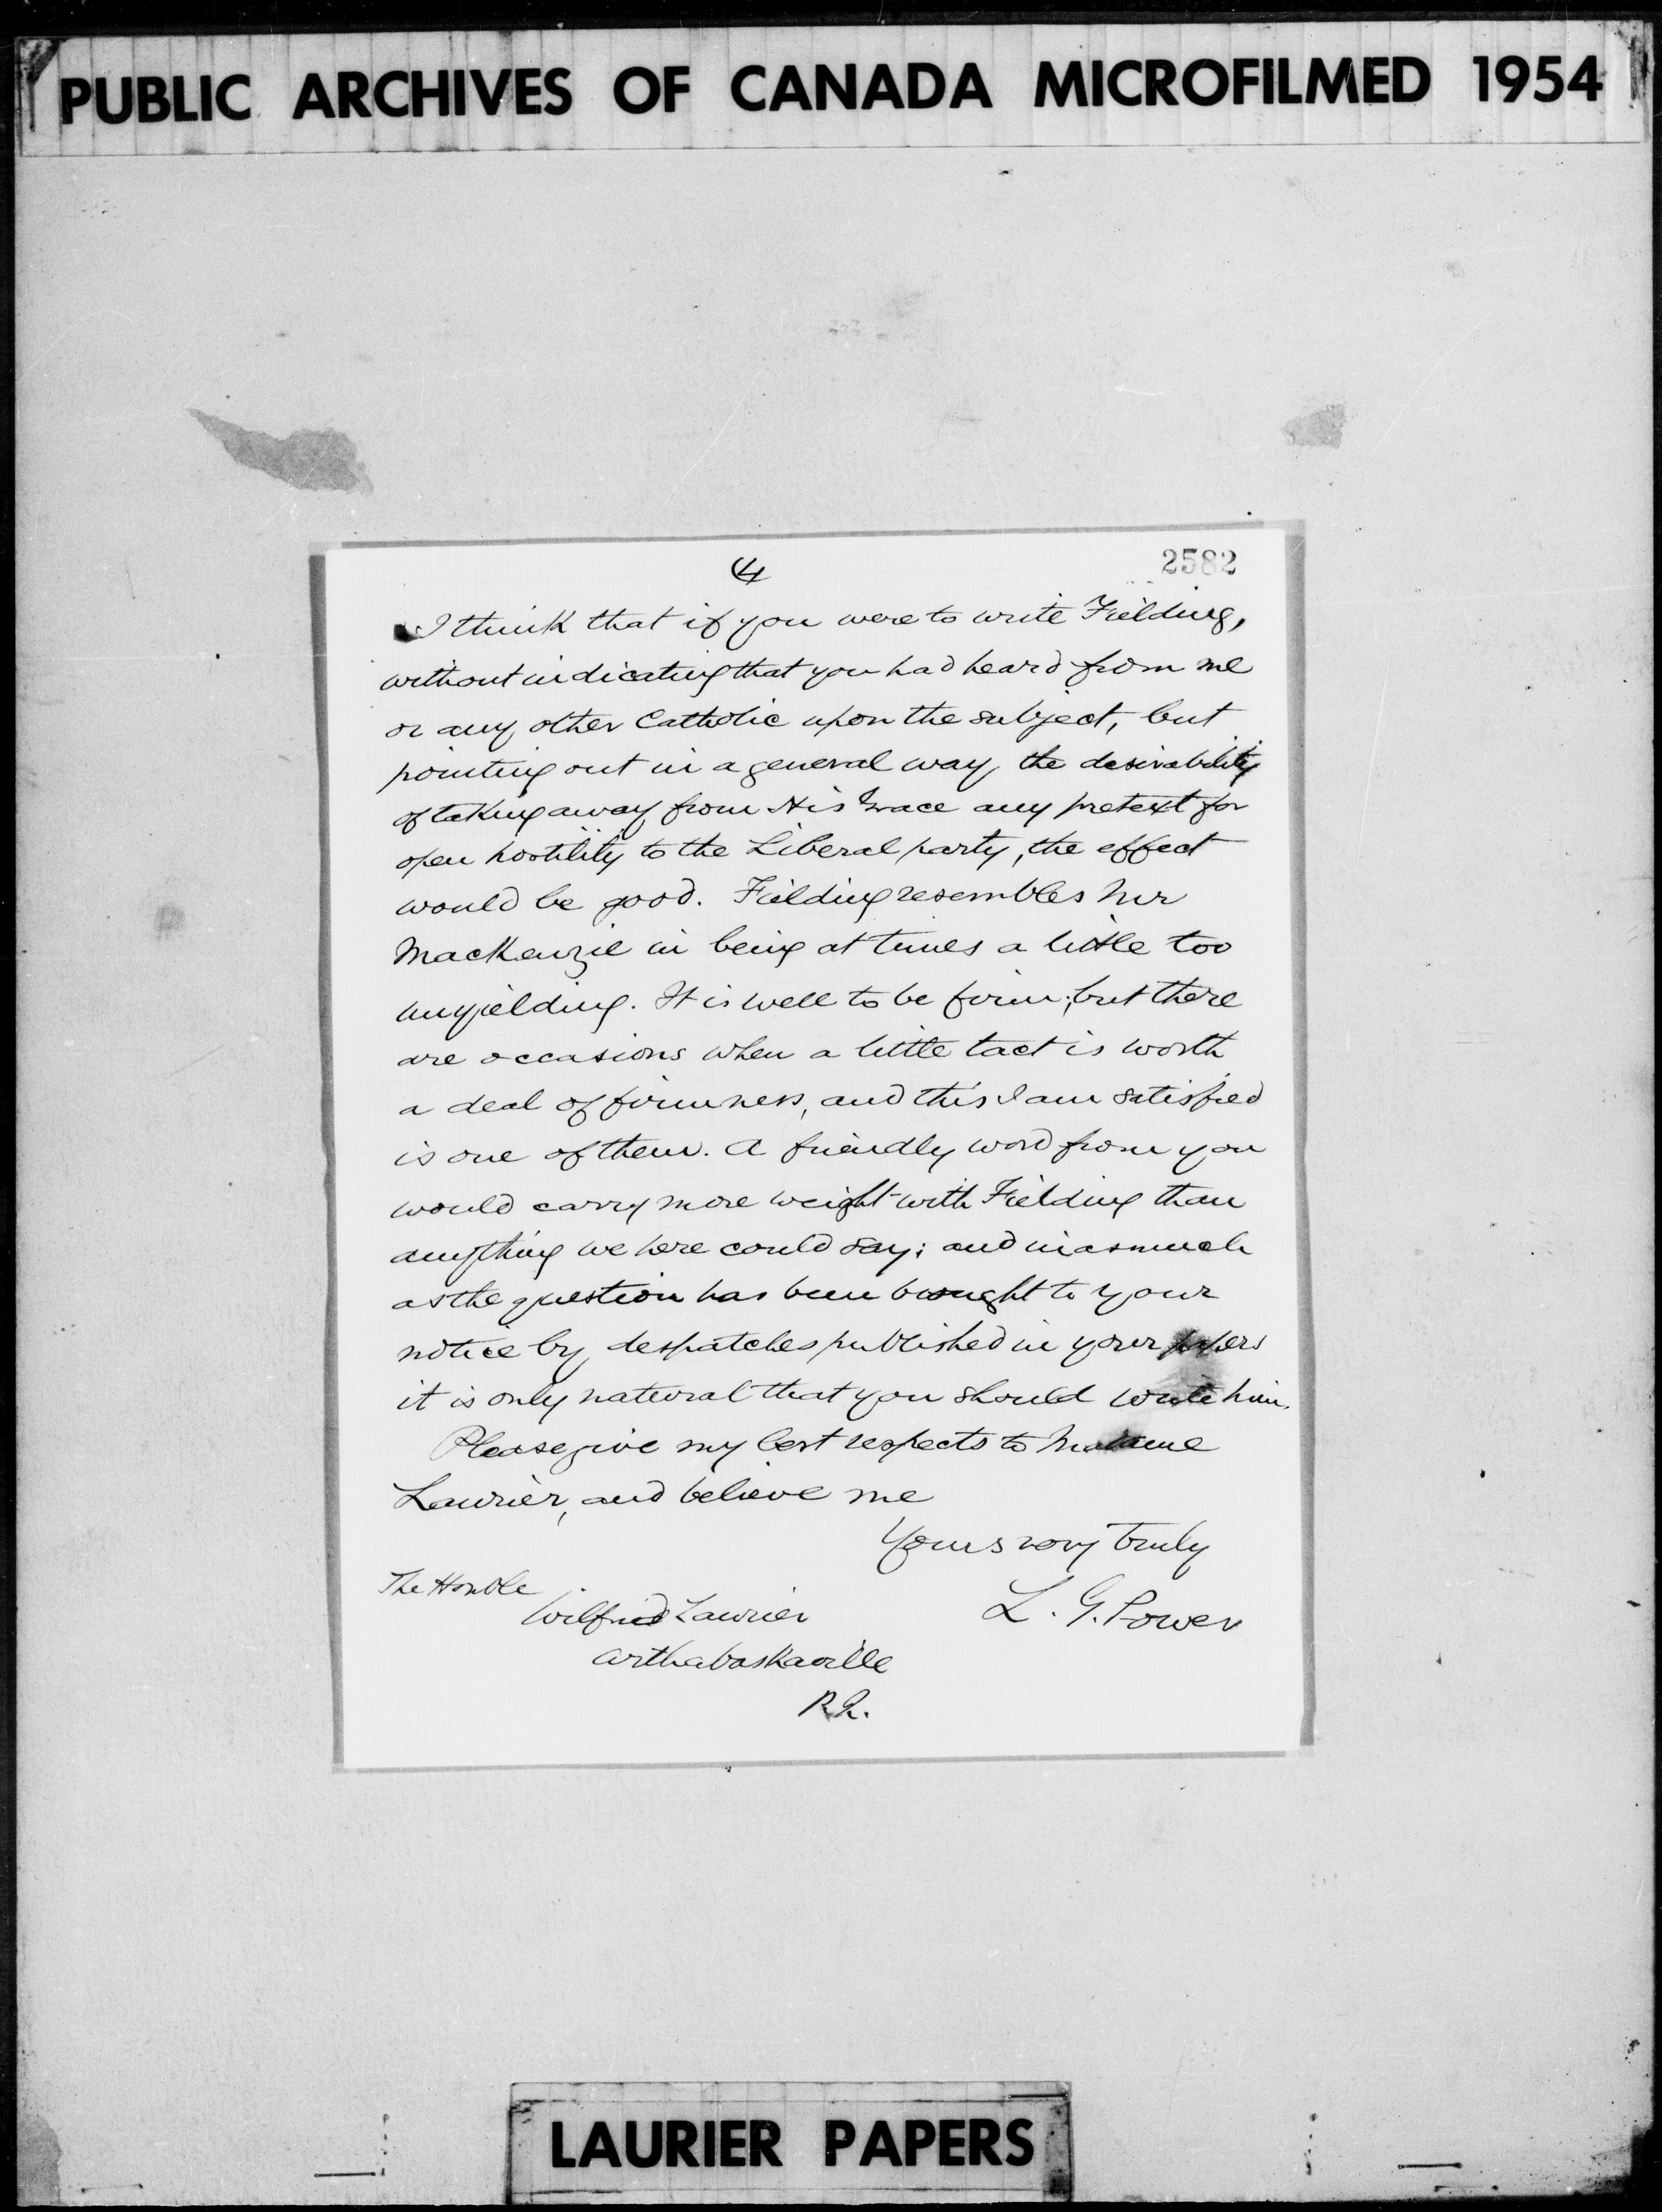 PUBLIC ARCHIVES OF CANADA MICROFILMED 1954
4
2582
I think that if you were to write Fielding,
without indicating that you had heard from me
or any other Catholic upon the subject, but
pointing out in a general way, the desirability
of taking away from His Grace any pretext for
open hostility to the Liberal party, the effect
would be good. Fielding resembles Mr
MacKenzie in being at times a little too
unyielding. It is well to be firm; but there
are occasions when a little tact is worth
a deal of firmness, and this I am satisfied
is one of them. A friendly word from you
would carry more weight with Fielding than
anything we here could say; and inasmuch
as the question has been brought to your
notice by despatches published in your papers
it is only natural that you should write him.
Please give my best respects to Madame
Laurier, and believe me
Yours very truly
L. G. Power
The Honble
Wilfrid Laurier
Arthabaskaville
P.Q.
LAURIER PAPERS